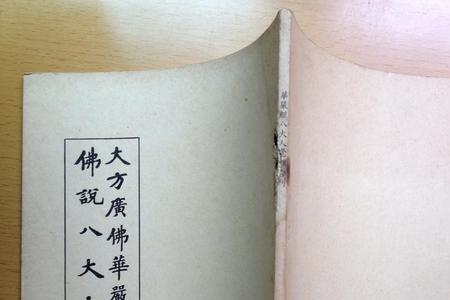 大方廣佛華嚴
佛說八大人
華嚴經八大人覺